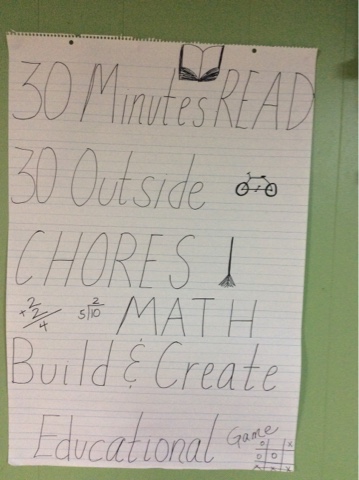 30 Minutes READ
30 Outside
CHORES
+2 2 4 5)10 2 MATH
Build & Create
Educational Game